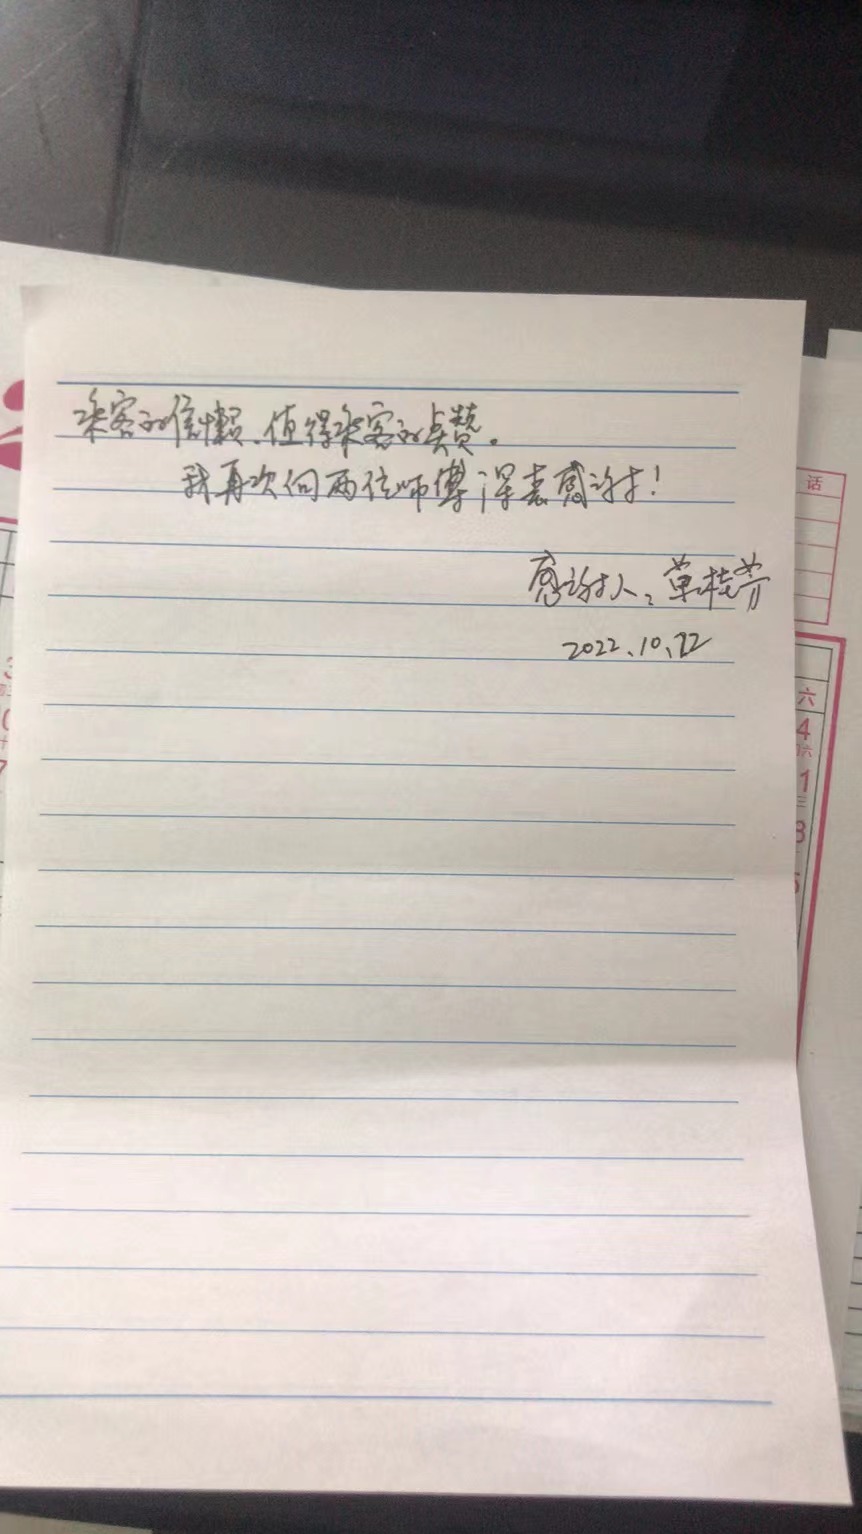 乘客的信懒、值得乘客的点赞。
我再次向两位师傅深表感谢!
感谢人:单桂芳
2022.10.22
话
六
4
1
8